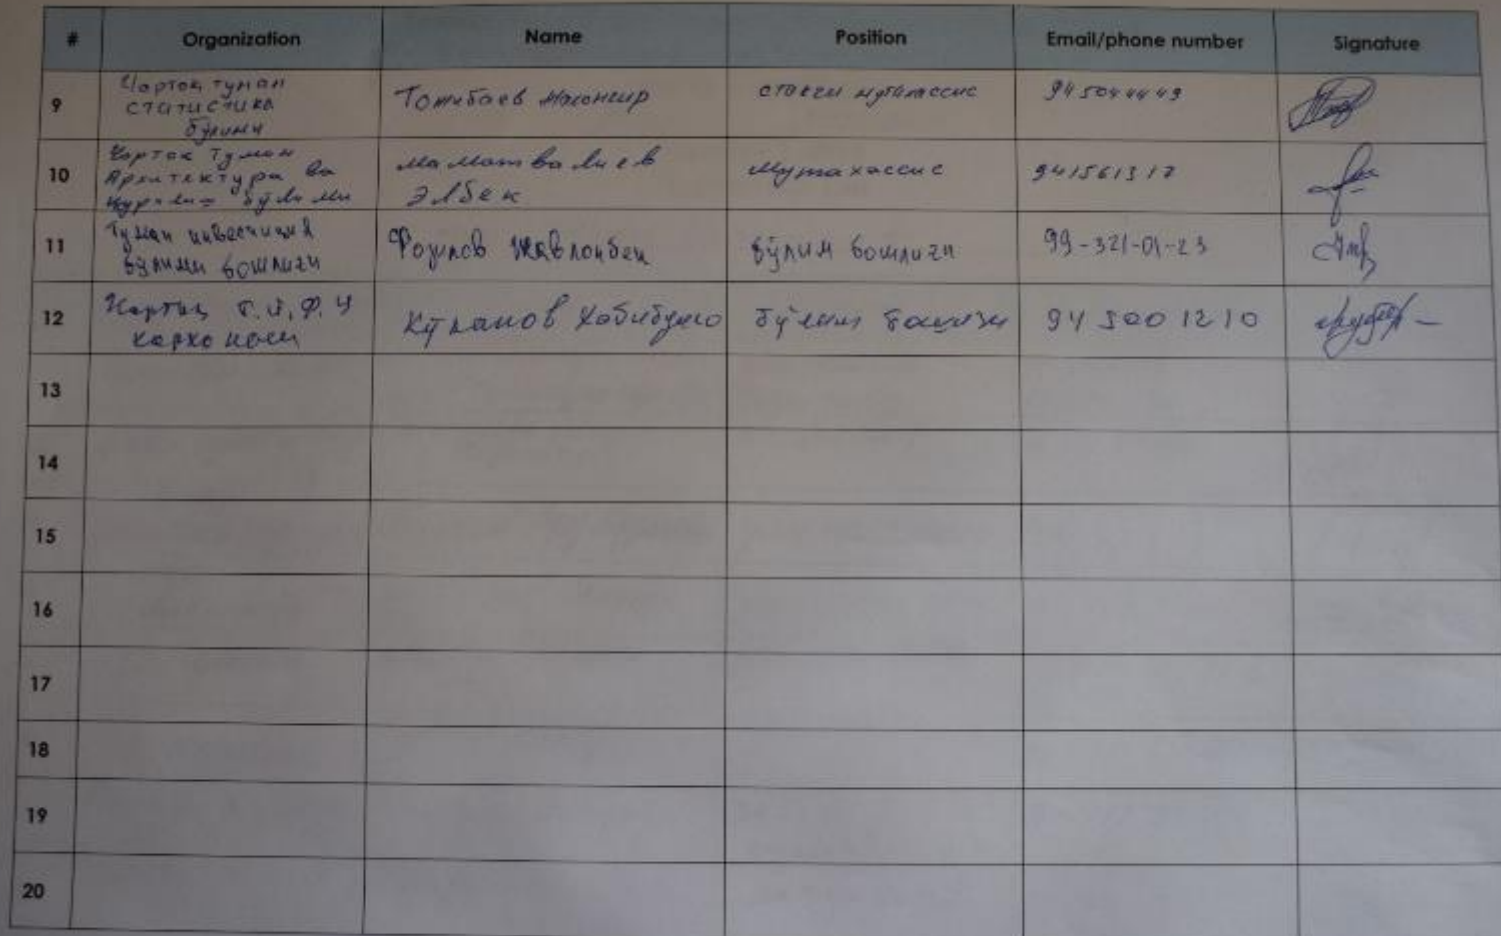 # Organization Name Position Email/phone number Signature
9 Чорток туман
статистика
бўлими
Тожибаев 945044449
10 Чорток Туман
Архитектура ва
Қурилиш бўлими
Маматвалиев
Элбек
Мутахассис 941561317
11 Туман инвестиция
бўлими бошлиғи
Фозилов Жавлонбек бўлим бошлиғи 99-321-01-23
12 Чортоқ
Хабибулло бўлим 94 500 12 10
13
14
15
16
17
18
19
20